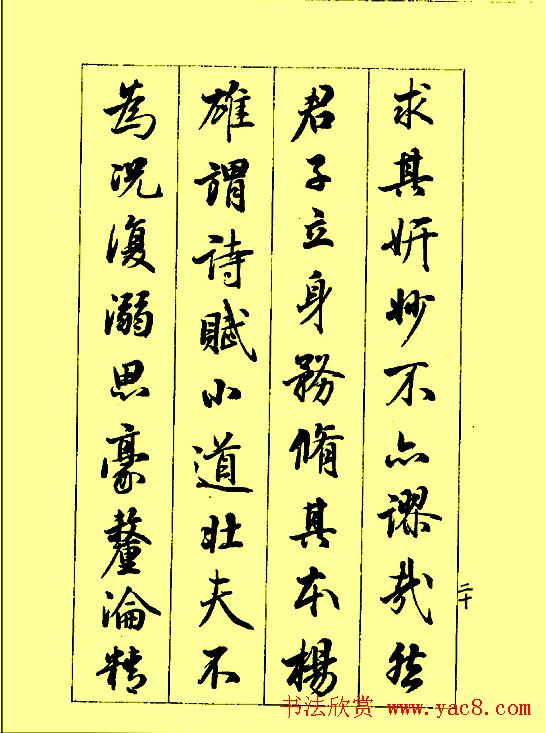 求其妍妙不亦谬哉然
君子立身務脩其本楊
雄謂詩賦小道壯夫不
為况復溺思豪釐淪精
二十
书法欣赏 www.yac8.com